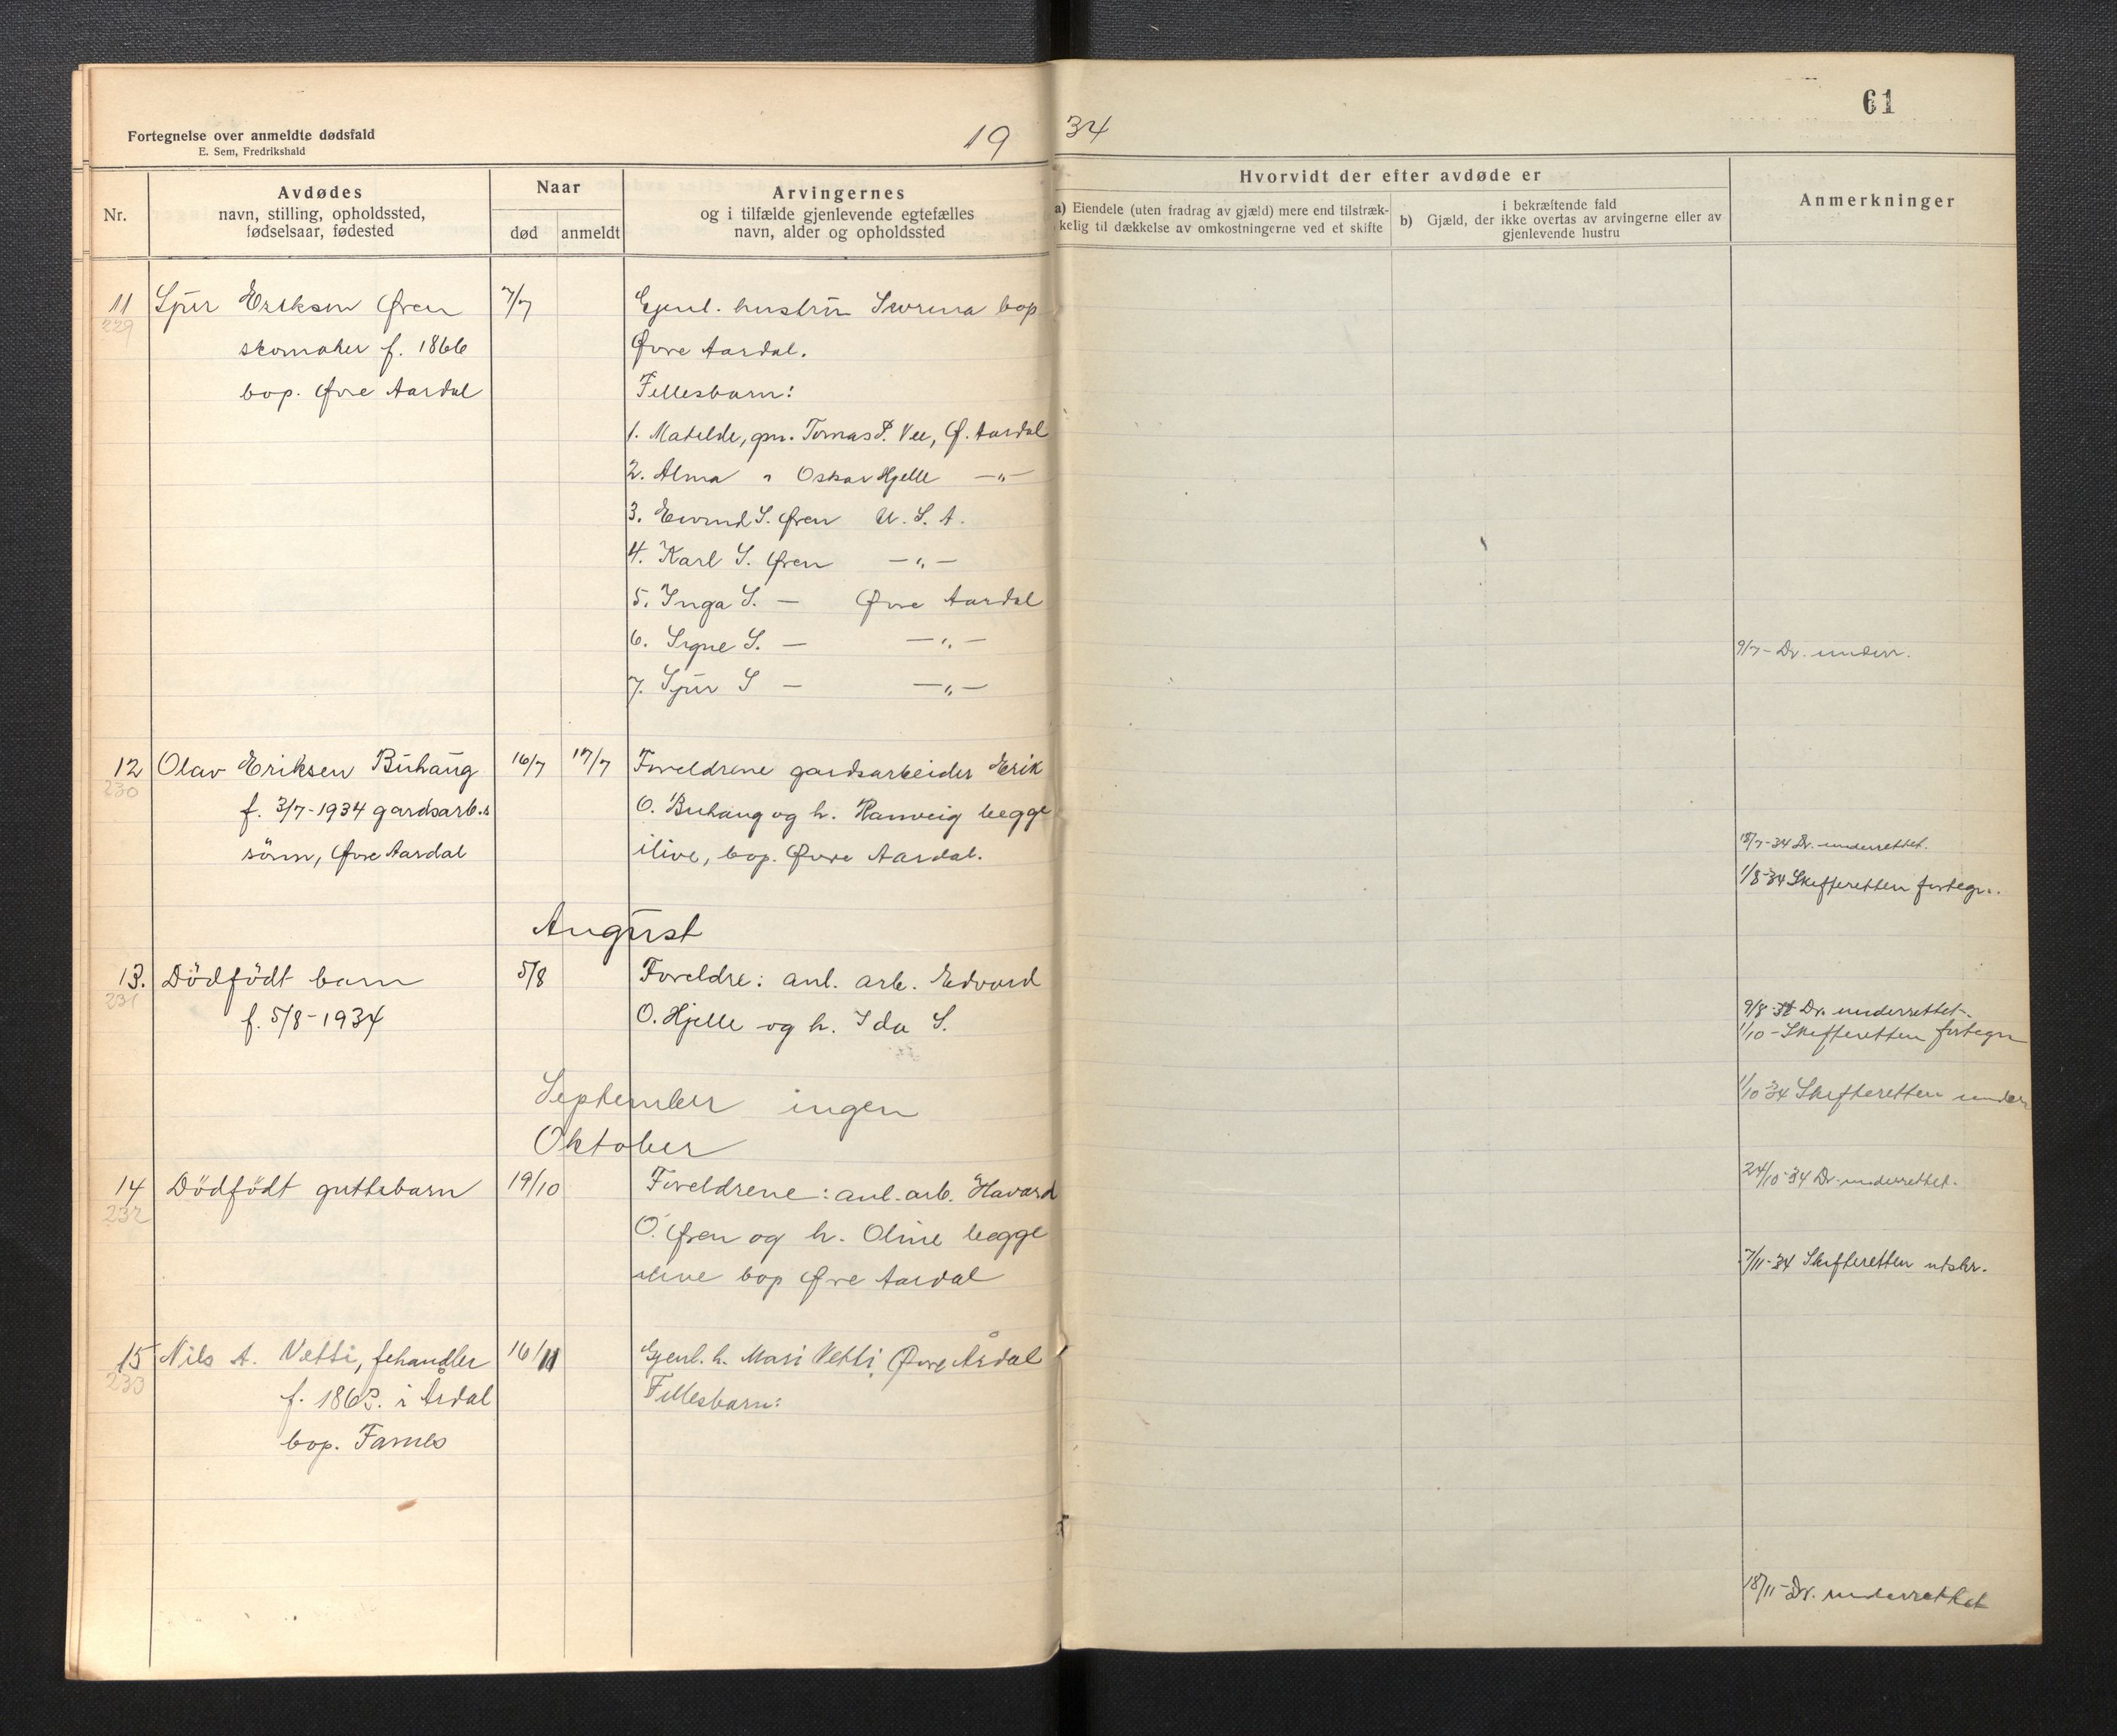 Fortegnelse over anmeldte dødsfald
E. Sem, Fredrikshald
19 34
61
Nr.
Avdødes
navn, stilling, opholdssted,
fødselsaar, fødested
Naar
død
anmeldt
Arvingernes
og i tilfælde gjenlevende egtefælles
navn, alder og opholdssted
Hvorvidt der efter avdøde er
a) Eiendele (uten fradrag av gjæld) mere end tilstræk-
kelig til dækkelse av omkostningerne ved et skifte
b) i bekræftende fald
Gjæld, der ikke overtas av arvingerne eller av
gjenlevende hustru
Anmerkninger
11
229
Sjur Eriksen Øren
skomaker f. 1866
bop. Øvre Aardal
7/7
Gjenl. hustru Severina bop
Øvre Aardal.
Fellesbarn:
1. Matilde, gm. Tomas P. Vee, Ø. Aardal
2. Alma " Oskar Hjelle —"—
3. Eivind S. Øren U. S. A.
4. Karl S. Øren —"—
5. Inga S. — Øvre Aardal
6. Signe S. — —"—
7. Sjur S — —"—
9/7 - Dr. underr.
12
230
Olav Eriksen Buhaug
f. 3/7-1934 gardsarb.s
sönn, Øvre Aardal
16/7
17/7
Foreldrene gardsarbeider Erik
O. Buhaug og h. Ranveig begge
ilive, bop. Øvre Aardal.
18/7-34 Dr. underrettet.
1/8-34 Skifteretten fortegn.
August
13.
231
Dödfödt barn
f. 5/8-1934
5/8
Foreldre: anl. arb. Edvard
O. Hjelle og h. Ida S.
9/8-34 Dr. underrettet.
1/10 - Skifteretten fortegn
September ingen
1/10 34 Skifteretten under
Oktober
14
232
Dödfödt guttebarn
19/10
Foreldrene: anl. arb. Havard
O. Øren og h. Oline begge
ilive bop Øvre Aardal
24/10-34 Dr. underrettet.
7/11-34 Skifteretten utskr.
15
233
Nils A. Vetti, fehandler
f. 1863. i Årdal
bop. Farnes
16/11
Gjenl. h. Mari Vetti, Øvre Årdal
Fellesbarn:
18/11 - Dr. underrettet